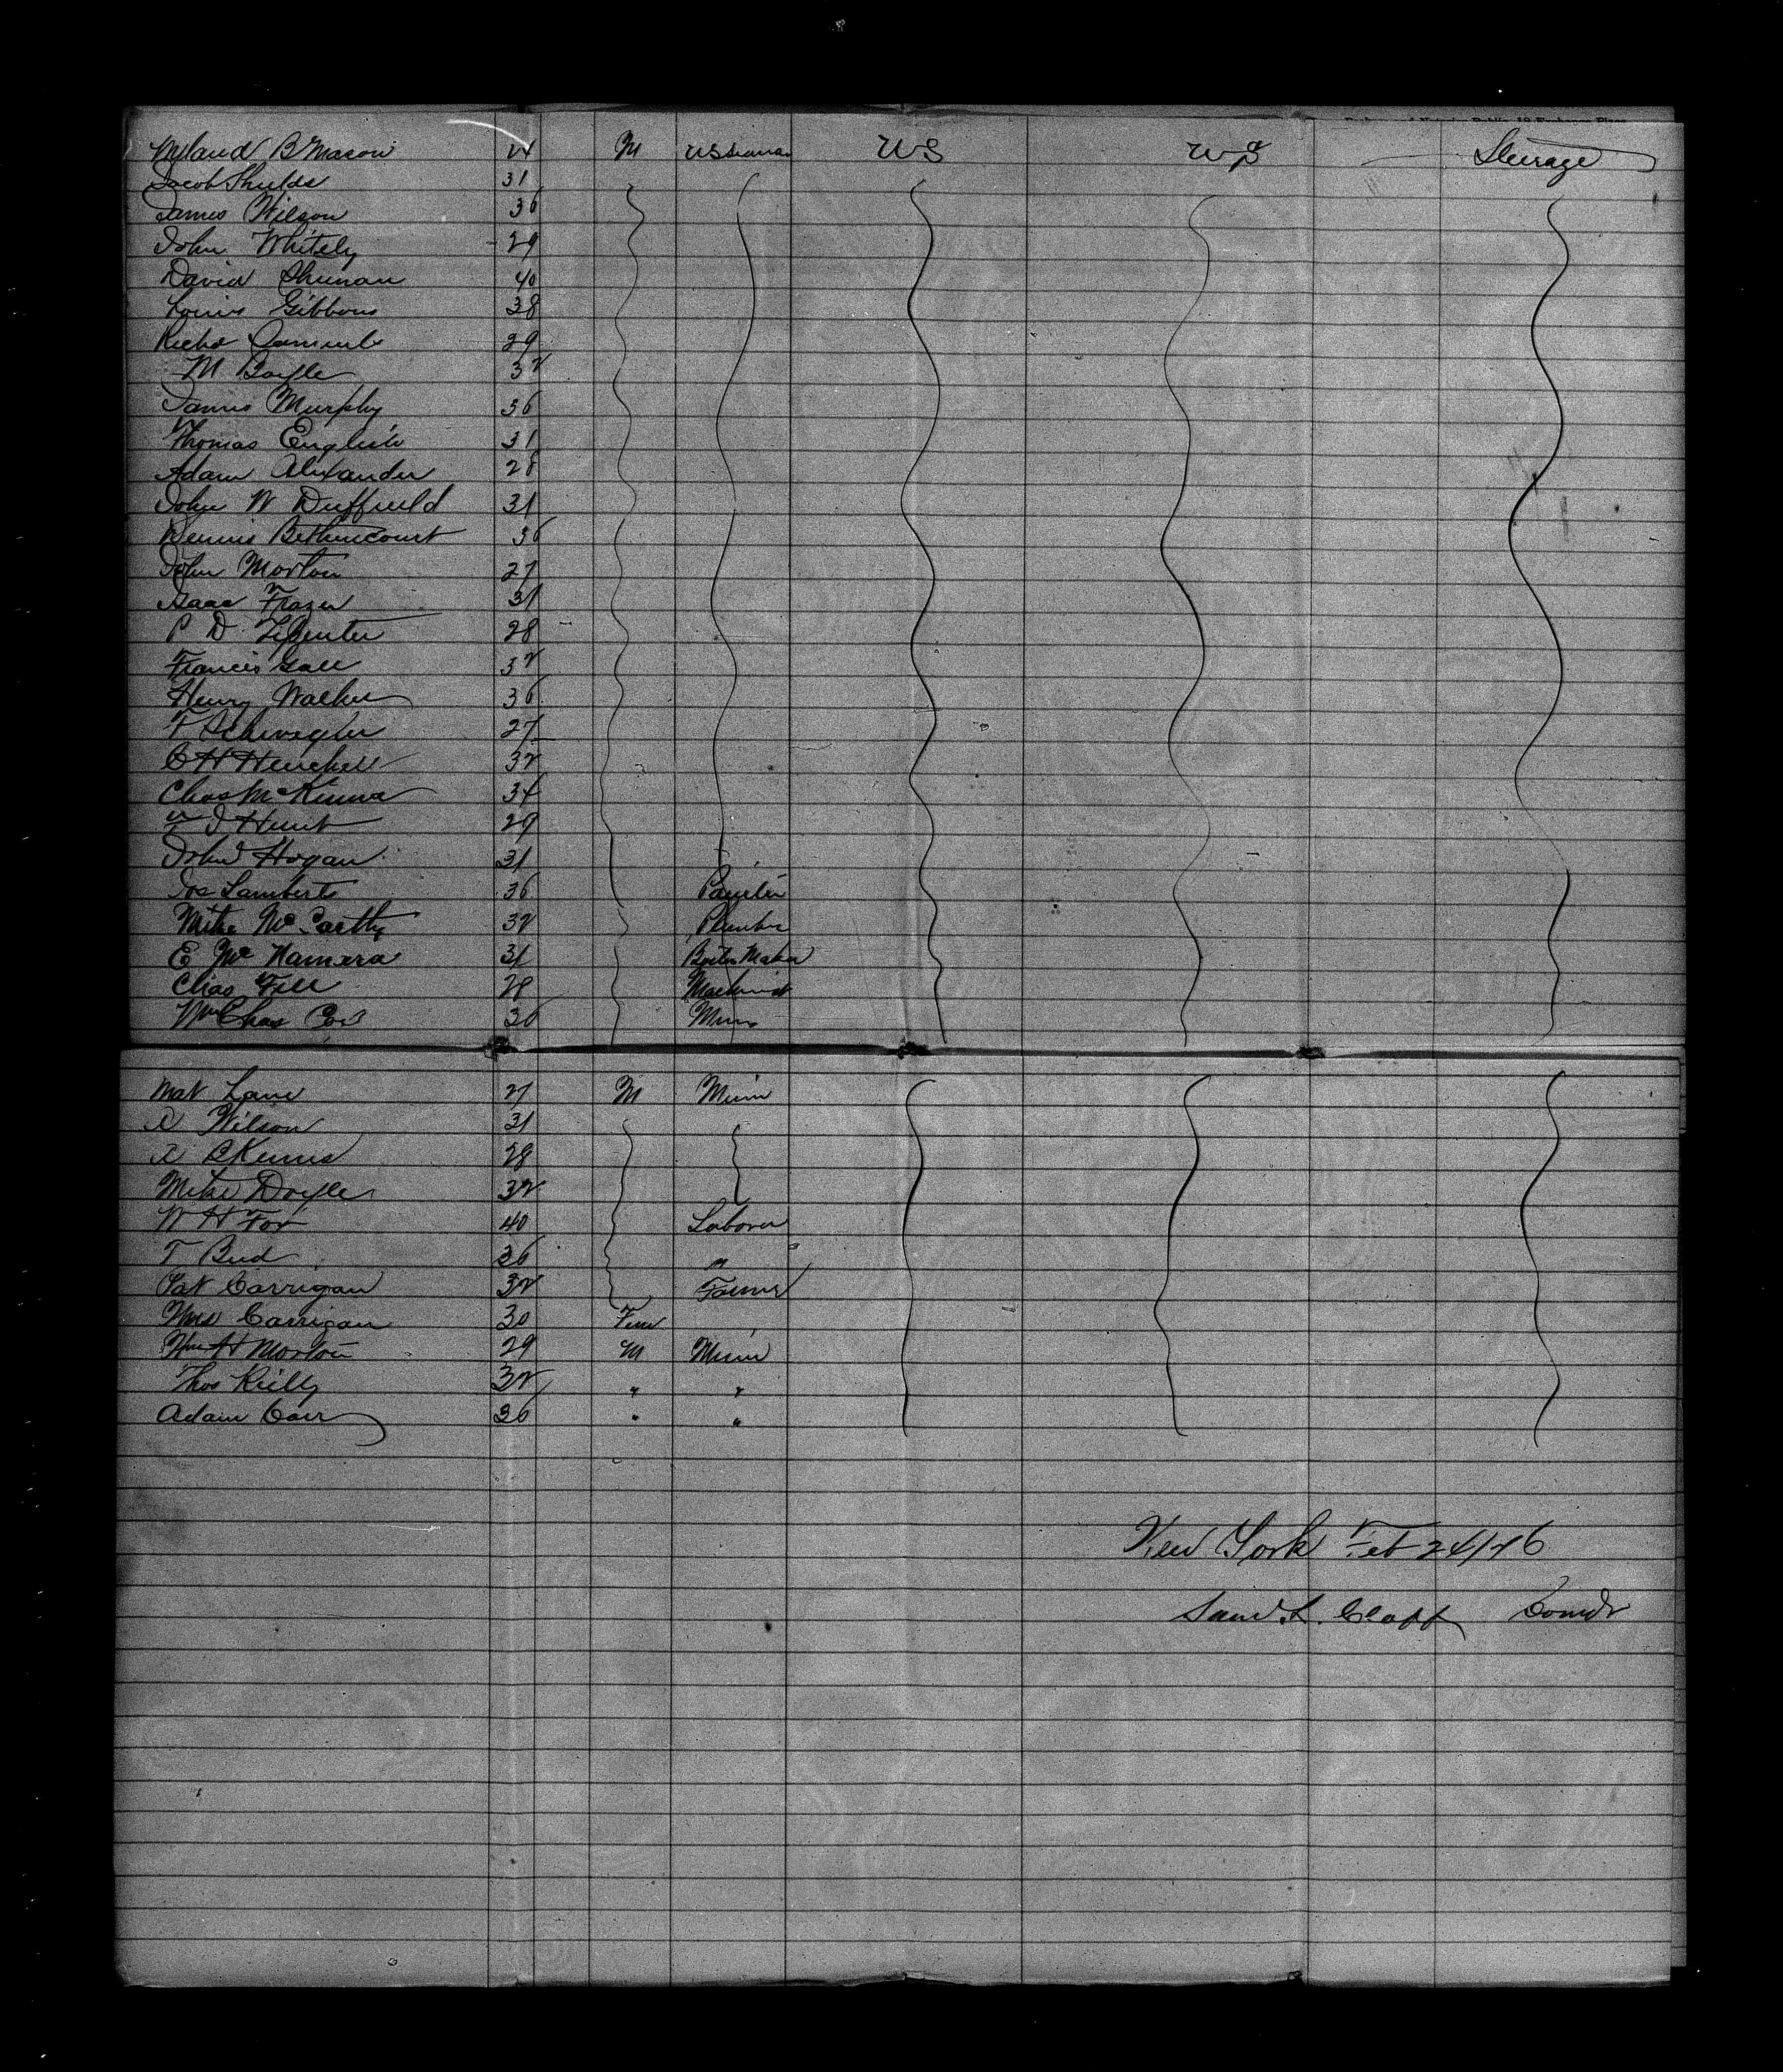 Nyland B Mason 24 M US Seaman US US Steerage
Jacob Shields 31
James Wilson 36
John Whitely 29
David Shuman 40
Louis Gibbons 38
Richd Samuels 29
M Boyle 32
James Murphy 36
Thomas English 31
Adam Alexander 28
John W Duffield 31
Dennis Bethencourt 36
John Morton 27
Isaac Frazer 31
P D 28
Francis Gall 32
Henry Walker 36
F Schwegler 27
C H Henchell 32
Chas McKinna 34
J Hunt 29
John Hogan 31
Jos Lamberts 36 Painter
Mike McCarthy 32 Plumber
E McNamara 31 Boiler Maker
Chas Fell 28 Machinist
Wm Chas Cox 36 Miner
Mat Lane 27 M Miner
Wilson 31
28
Mike Doyle 32
W H Fox 40 Laborer
T Bud 36 "
Pat Carrigan 32 Farmer
Mrs Carrigan 30 Fem
Wm H Morton 29 M Miner
Thos Reilly 32 " "
Adam Carr 36 " "
New York Feb 24/76
Saml L. Clapp Comdr